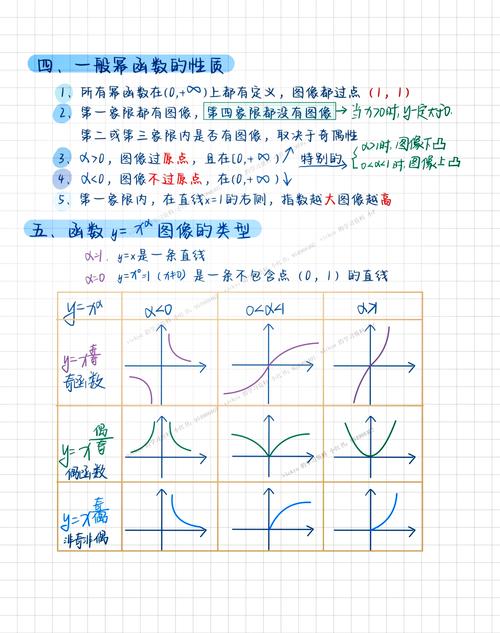 四、一般幂函数的性质
1、所有幂函数在(0,+∞)上都有定义，图像都过点 (1, 1)
2、第一象限都有图像，第四象限都没有图像→当x>0时,y一定大于0.
第二或第三象限内是否有图像，取决于奇偶性
3、α>0，图像过原点，且在[0,+∞)↗ 特别的 { α>1时.图像下凸
0<α<1时.图像上凸
4、α<0，图像不过原点，在(0,+∞)↓
5、第一象限内，在直线x=1的右则，指数越大图像越高
五、函数y=x^α图像的类型
α=1. y=x是一条直线
α=0 y=x⁰=1 (x≠0) 是一条不包含点 (0, 1) 的直线
y=x^α α<0 0<α<1 α>1
y=x^(奇/奇)
奇函数
y=x^(偶/奇)
偶函数
y=x^(奇/偶)
非奇非偶